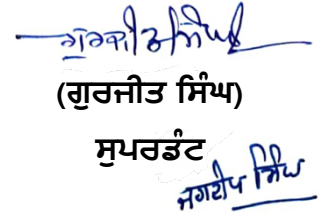 ਗੁਰਜੀਤ ਸਿੰਘ
(ਗੁਰਜੀਤ ਸਿੰਘ)
ਸੁਪਰਡੰਟ
ਜਗਦੀਪ ਸਿੰਘ